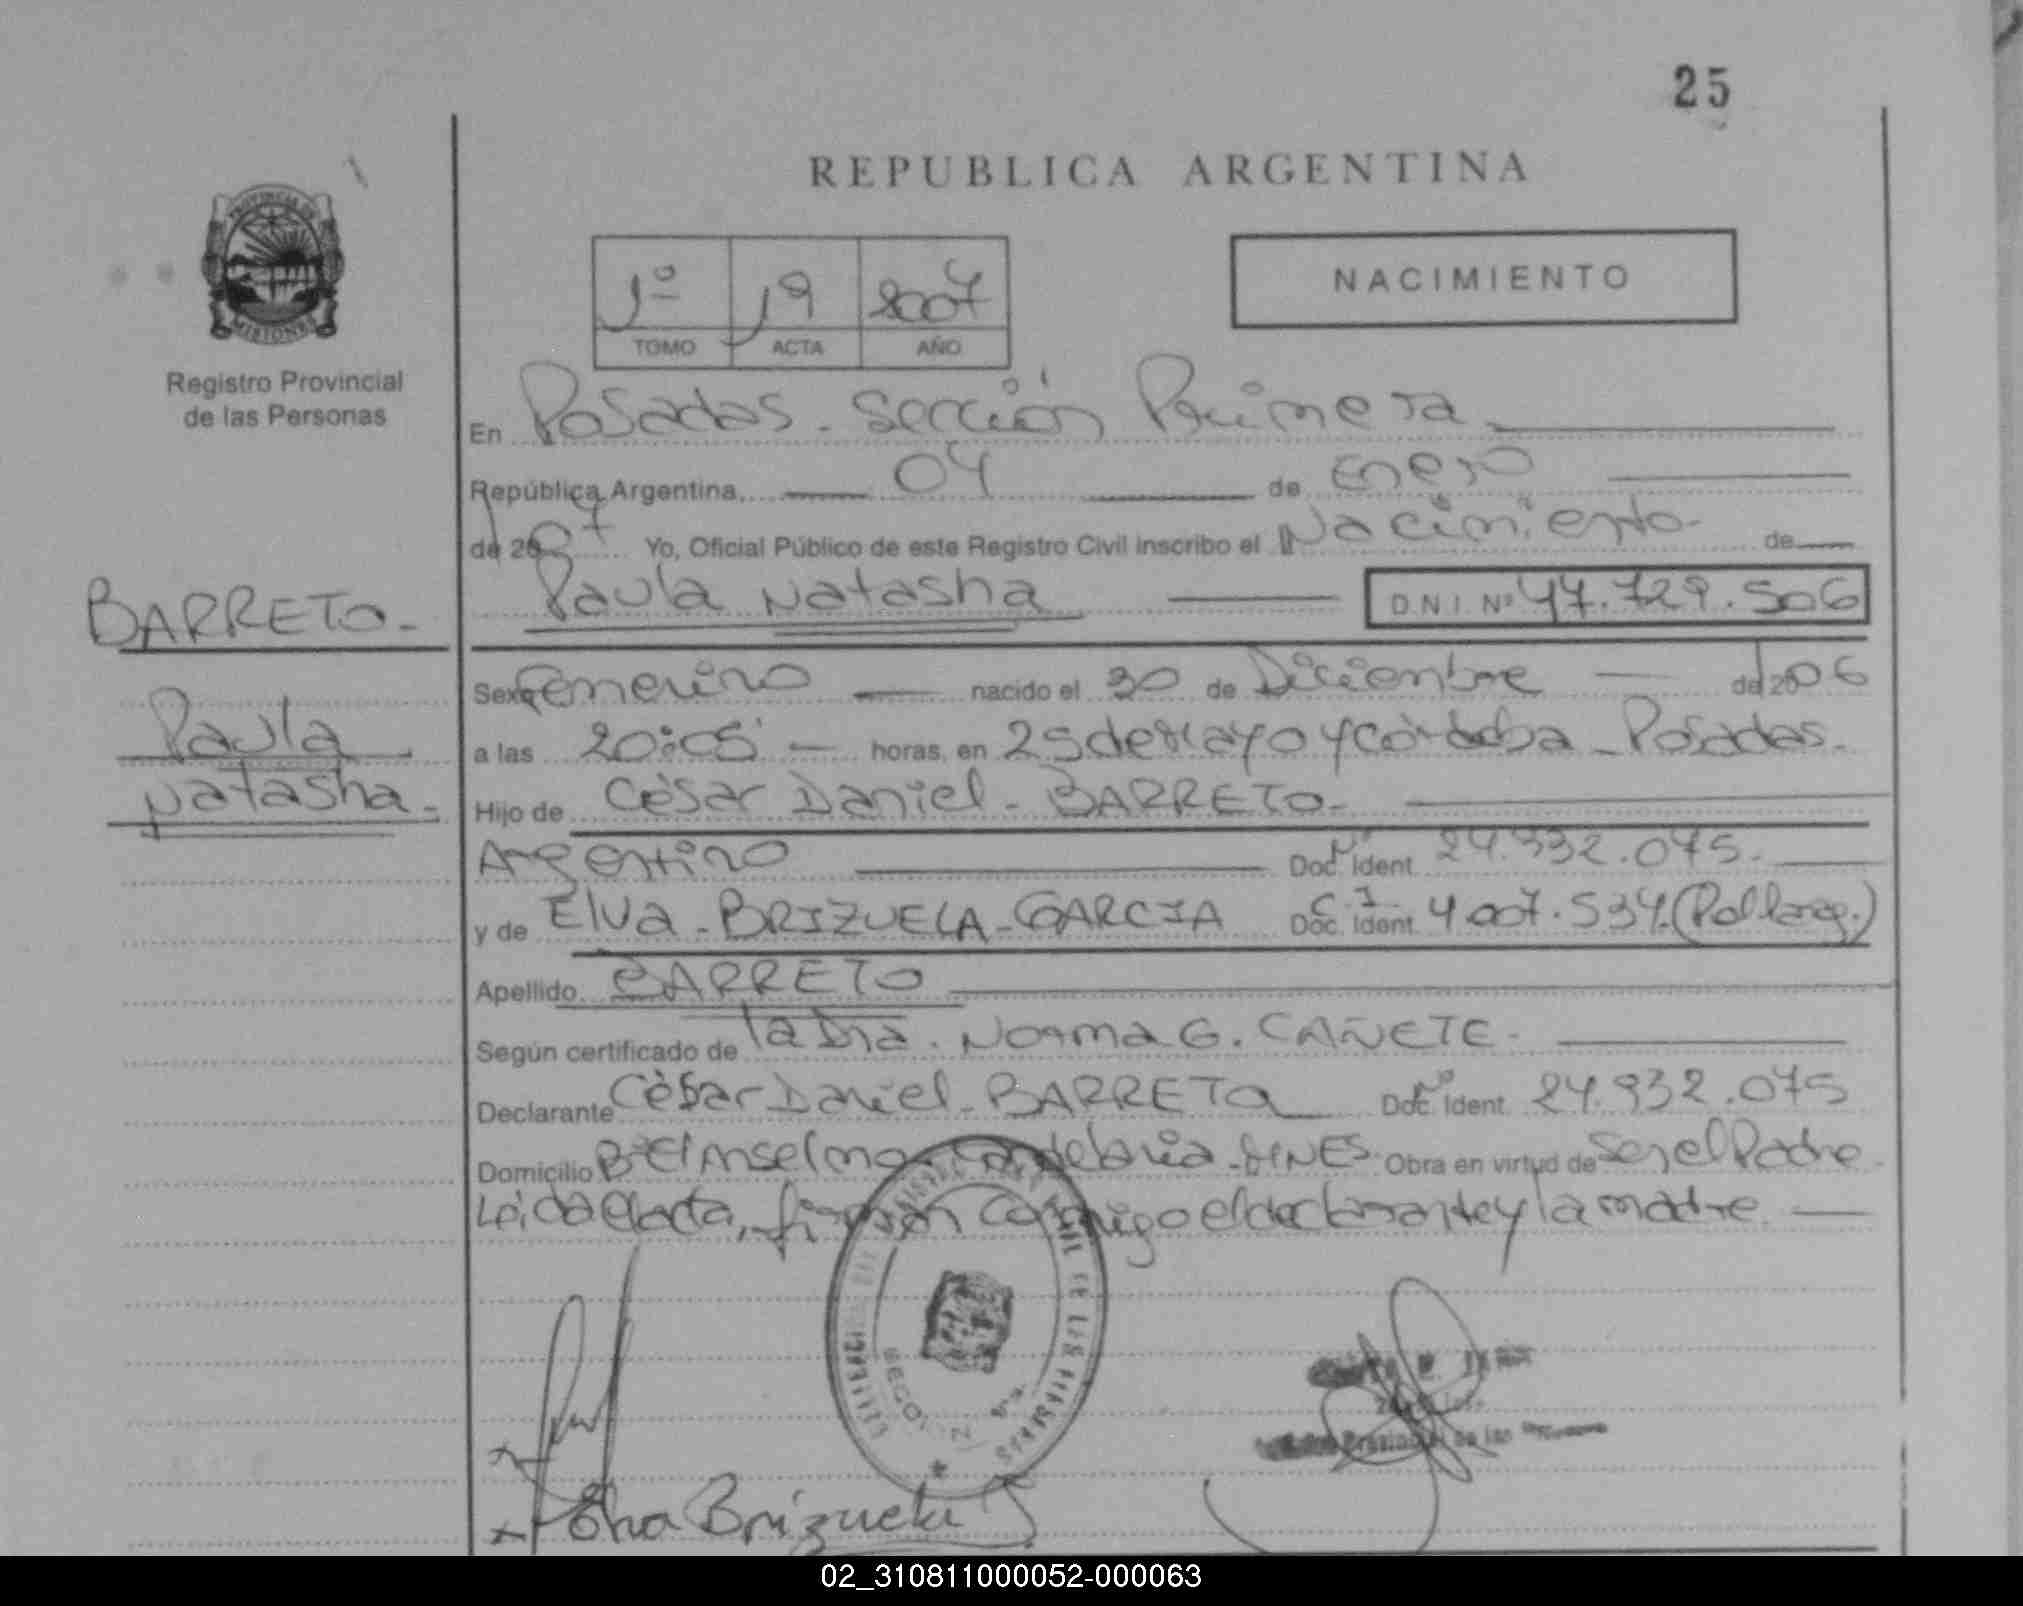 25
REPUBLICA ARGENTINA
PROVINCIA DE
MISIONES
Registro Provincial
de las Personas
1º 19 2007
TOMO ACTA AÑO
NACIMIENTO
En Posadas - Sección Primera
República Argentina, 04 de Enero
de 2007 Yo, Oficial Público de este Registro Civil inscribo el Nacimiento de
Paula Natasha D.N.I. Nº 47.729.506
BARRETO -
Paula
Natasha -
Sexo Femenino nacido el 30 de Diciembre de 2006
a las 20:05' horas, en 25 de Mayo y Córdoba - Posadas -
Hijo de César Daniel - BARRETO -
Argentino Doc. Ident. 24.932.075 -
y de Elva - BRIZUELA - GARCIA C.I. Doc. Ident. 4.007.534 (Pol Parag.)
Apellido BARRETO
Según certificado de la Dra. Norma G. CAÑETE -
Declarante César Daniel - BARRETO Doc. Ident. 24.932.075
Domicilio Bº El Anselmo - Candelaria - MNES - Obra en virtud de Ser el Padre -
Leída el acta, firman conmigo el declarante y la madre.
Elva Brizuela G
02_310811000052-000063